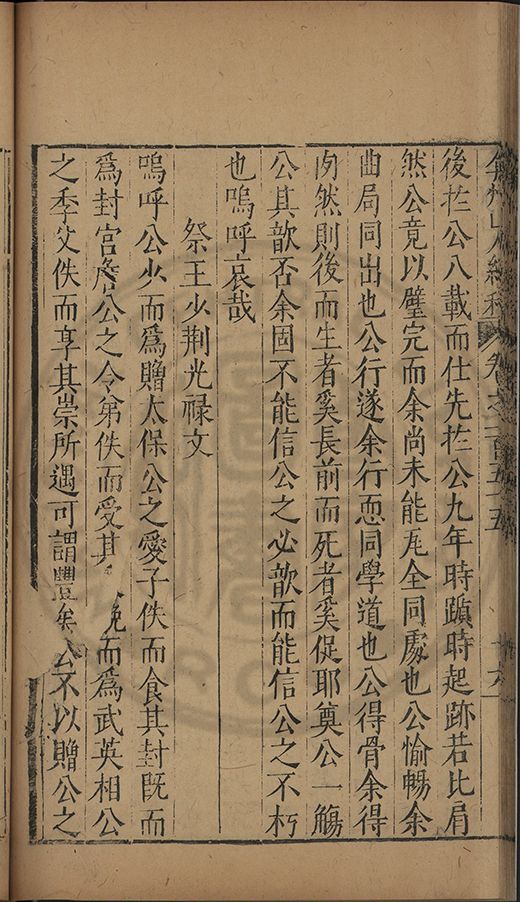 弇州山人續稿 卷之一百五十五 十六
後於公八載而仕先於公九年時蹟時起跡若比肩
然公竟以璧完而余尚未能瓦全同處也公愉暢余
曲局同出也公行遂余行恧同學道也公得骨余得
肉然則後而生者奚長前而死者奚促耶奠公一觴
公其歆否余固不能信公之必歆而能信公之不朽
也嗚呼哀哉
祭王少荆光禄文
嗚呼公少而爲贈太保公之愛子佚而食其封旣而
爲封宫詹公之令弟佚而受其 晚而爲武英相公
之季父佚而享其崇所遇可謂豐矣公不以贈公之